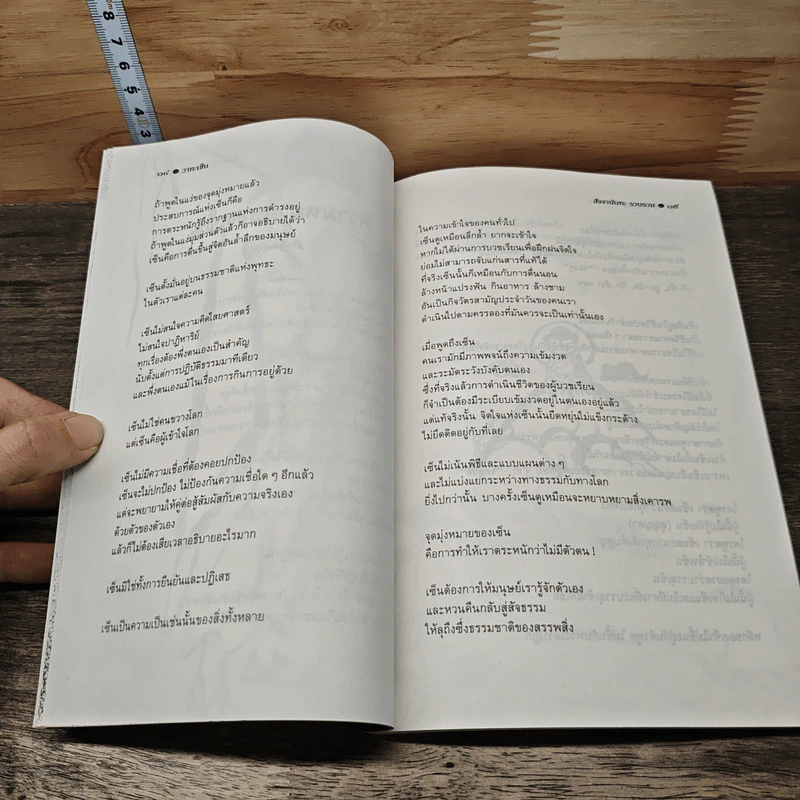 8
7
6
5
4
3
๑๔ ● วาทะเซ็น
ถ้าพูดในแง่ของจุดมุ่งหมายแล้ว
ประสบการณ์แห่งเซ็นก็คือ
การตระหนักรู้ถึงรากฐานแห่งการดำรงอยู่
ถ้าพูดในแง่มุมส่วนตัวแล้วก็อาจอธิบายได้ว่า
เซ็นคือการตื่นขึ้นสู่จิตอันล้ำลึกของมนุษย์
เซ็นตั้งมั่นอยู่บนธรรมชาติแห่งพุทธะ
ในตัวเราแต่ละคน
เซ็นไม่สนใจความคิดไสยศาสตร์
ไม่สนใจปาฏิหาริย์
ทุกเรื่องต้องพึ่งตนเองเป็นสำคัญ
นับตั้งแต่การปฏิบัติธรรมมาทีเดียว
และพึ่งตนเองแม้ในเรื่องการกินการอยู่ด้วย
เซ็นไม่ใช่คนขวางโลก
แต่เซ็นคือผู้เข้าใจโลก
เซ็นไม่มีความเชื่อที่ต้องคอยปกป้อง
เซ็นจะไม่ปกป้อง ไม่ป้องกันความเชื่อใด ๆ อีกแล้ว
แต่จะพยายามให้คู่ต่อสู้สัมผัสกับความจริงเอง
ด้วยตัวของตัวเอง
แล้วก็ไม่ต้องเสียเวลาอธิบายอะไรมาก
เซ็นมิใช่ทั้งการยืนยันและปฏิเสธ
เซ็นเป็นความเป็นเช่นนั้นของสิ่งทั้งหลาย
สัจจานันทะ รวบรวม ● ๑๕
ในความเข้าใจของคนทั่วไป
เซ็นดูเหมือนลึกล้ำ ยากจะเข้าใจ
หากไม่ได้ผ่านการบวชเรียนเพื่อฝึกฝนจิตใจ
ย่อมไม่สามารถจับแก่นสารที่แท้ได้
ที่จริงเซ็นนั้นก็เหมือนกับการตื่นนอน
ล้างหน้าแปรงฟัน กินอาหาร ล้างชาม
อันเป็นกิจวัตรสามัญประจำวันของคนเรา
ดำเนินไปตามครรลองที่มันควรจะเป็นเท่านั้นเอง
เมื่อพูดถึงเซ็น
คนเรามักมีภาพพจน์ถึงความเข้มงวด
และระมัดระวังบังคับตนเอง
ซึ่งที่จริงแล้วการดำเนินชีวิตของผู้บวชเรียน
ก็จำเป็นต้องมีระเบียบเข้มงวดอยู่ในตนเองอยู่แล้ว
แต่แท้จริงนั้น จิตใจแห่งเซ็นนั้นยืดหยุ่นไม่แข็งกระด้าง
ไม่ยึดติดอยู่กับที่เลย
เซ็นไม่เน้นพิธีและแบบแผนต่าง ๆ
และไม่แบ่งแยกระหว่างทางธรรมกับทางโลก
ยิ่งไปกว่านั้น บางครั้งเซ็นดูเหมือนจะหยาบหยามสิ่งเคารพ
จุดมุ่งหมายของเซ็น
คือการทำให้เราตระหนักว่าไม่มีตัวตน !
เซ็นต้องการให้มนุษย์เรารู้จักตัวเอง
และหวนคืนกลับสู่สัจธรรม
ให้ลุถึงซึ่งธรรมชาติของสรรพสิ่ง